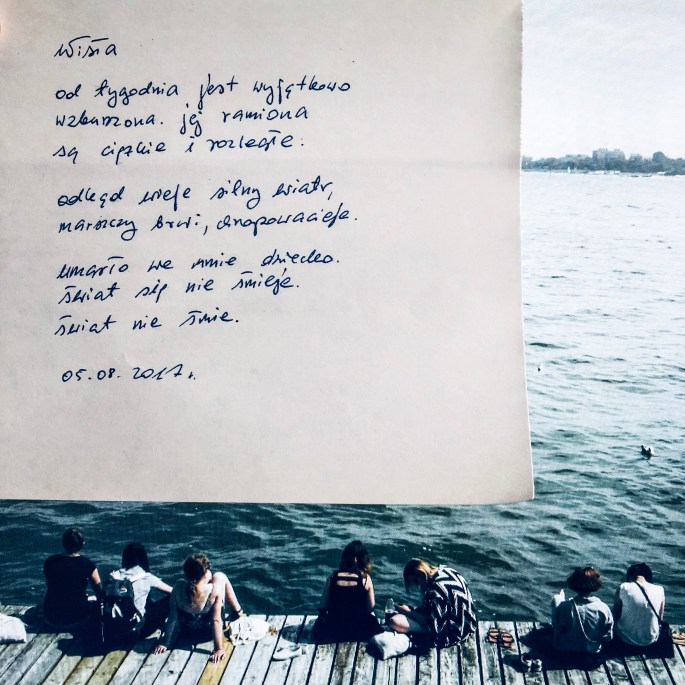 Wisła
od tygodnia jest wyjątkowo
wzburzona. jej ramiona
są ciężkie i rozległe.
odkąd wieje silny wiatr,
marszczy brwi, chropowacieje.
umarło we mnie dziecko.
świat się nie śmieje.
świat nie śmie.
05.08.2017 r.